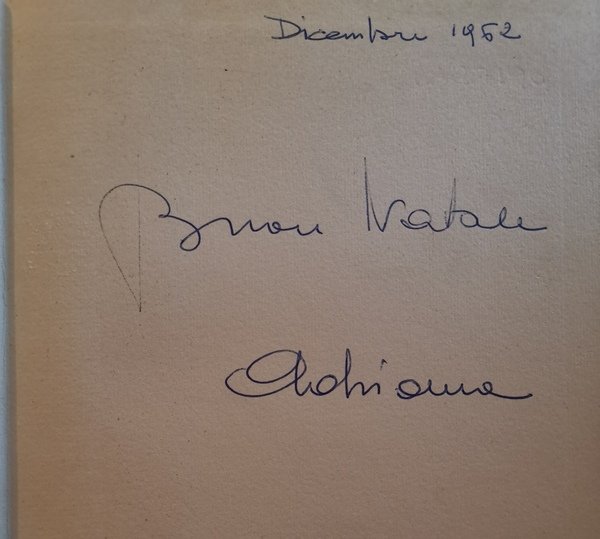 Dicembre 1962
Buon Natale
Adriana